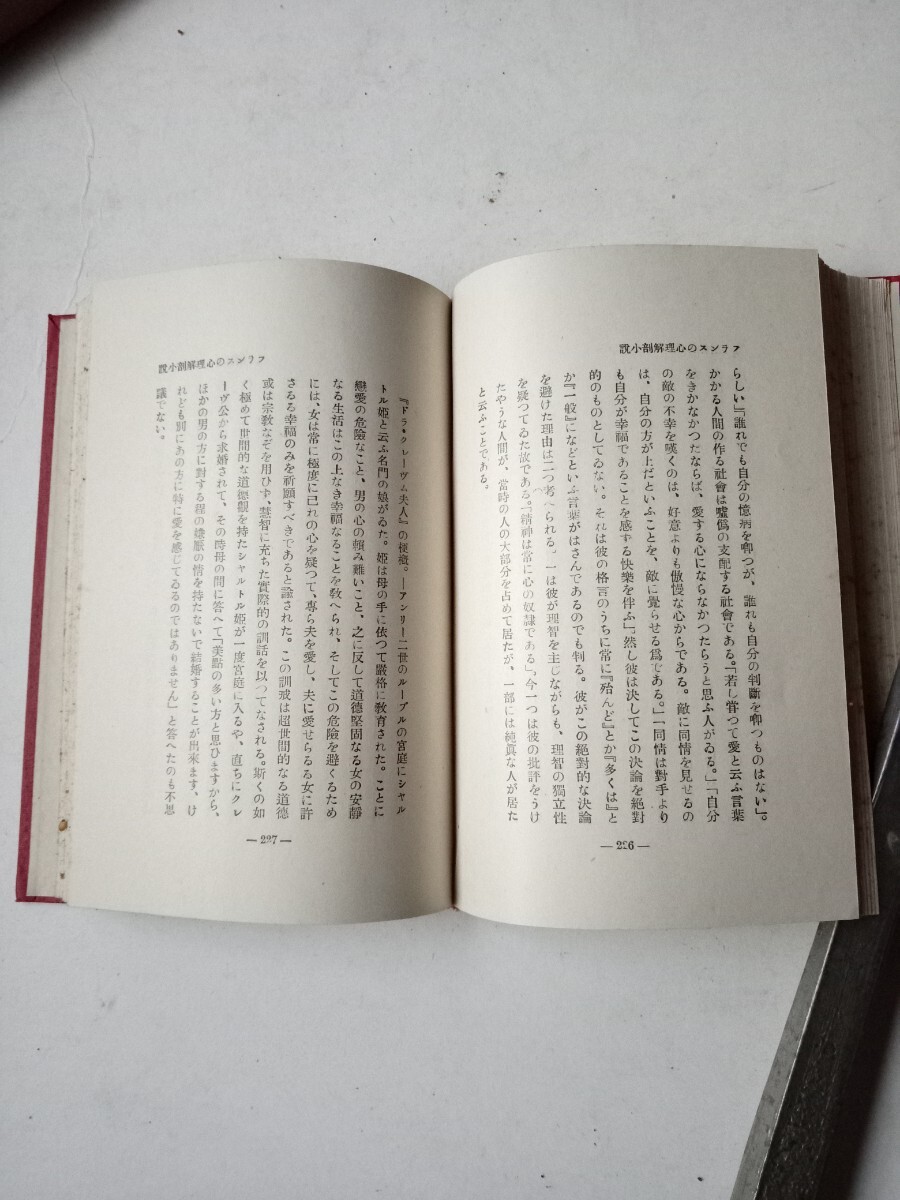 フランスの心理解剖小説
らしい』『誰れでも自分の憶病を喞つが、誰れも自分の判斷を喞つものはない』。
かかる人間の作る社會は嘘僞の支配する社會である。『若し甞つて愛と云ふ言葉
をきかなかつたならば、愛する心にならなかつたらうと思ふ人がゐる。』『自分
の敵の不幸を嘆くのは、好意よりも傲慢な心からである。敵に同情を見せるの
は、自分の方が上だといふことを、敵に覺らせる爲である。』『同情は對手より
も自分が幸福であることを感ずる快樂を伴ふ』然し彼は決してこの決論を絶對
的のものとしてゐない。それは彼の格言のうちに常に『殆んど』とか『多くは』と
か『一般』になどといふ言葉がはさんであるのでも判る。彼がこの絶對的な決論
を避けた理由は二つ考へられる。一は彼が理智を主しながらも、理智の獨立性
を疑つてゐた故である。『精神は常に心の奴隷である』今一つは彼の批評をうけ
たやうな人間が、當時の人の大部分を占めて居たが、一部には純眞な人が居た
と云ふことである。
— 226 —
フランスの心理解剖小説
『ドラ・クレーヴム夫人』の梗概。—アンリー二世のルーブルの宮庭にシャル
トル姫と云ふ名門の娘がゐた。姫は母の手に依つて嚴格に教育された。ことに
戀愛の危險なこと、男の心の賴み難いこと、之に反して道德堅固なる女の安靜
なる生活はこの上なき幸福なることを敎へられ、そしてこの危險を避くるため
には、女は常に極度に己れの心を疑つて、專ら夫を愛し、夫に愛せらるる女に許
さるる幸福のみを祈願すべきであると諭された。この訓戒は超世間的なる道德
或は宗敎なぞを用ひず、慧智に充ちた實際的の訓話を以つてなされる。斯くの如
く極めて世間的な道德觀を持たシャルトル姫が一度宮庭に入るや、直ちにクレ
ーヴ公から求婚されて、その時母の問に答へて「美點の多い方と思ひますから、
ほかの男の方に對する程の嫌厭の情を持たないで結婚することが出來ます、け
れども別にあの方に特に愛を感じてゐるのではありません」と答へたのも不思
議でない。
— 227 —